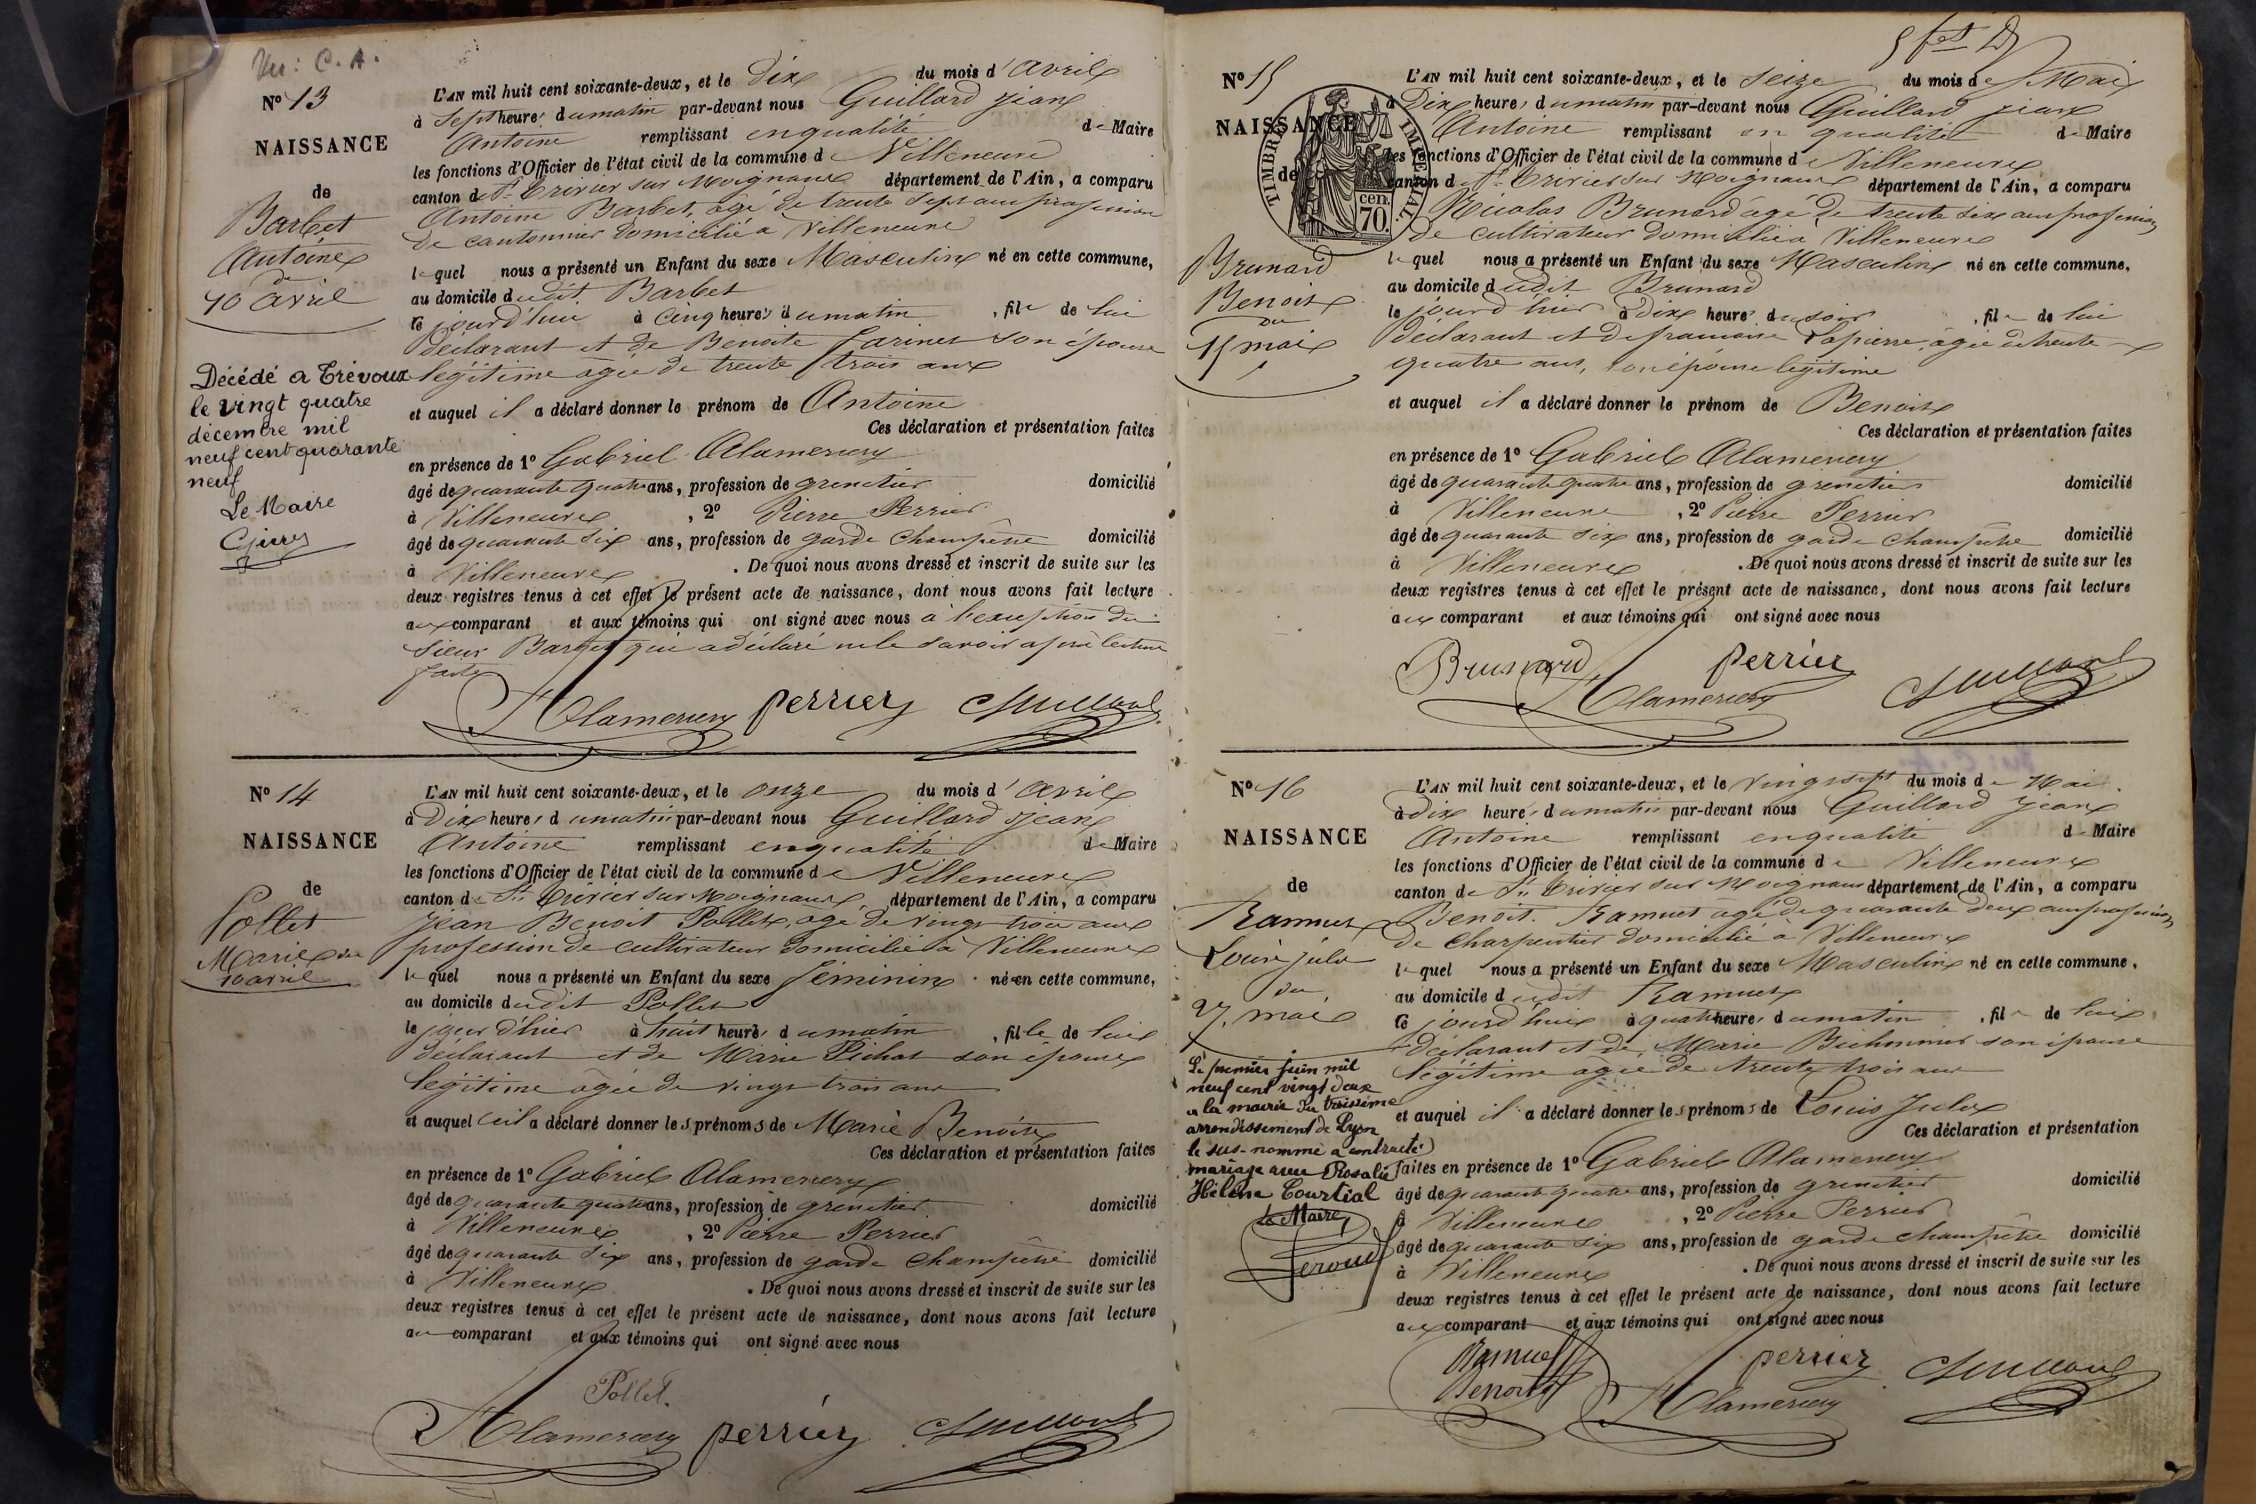 Vu : C. A.
N° 13
NAISSANCE
de
Barbet
Antoine
du
10 avril
Décédé a Trévoux
le vingt quatre
décembre mil
neuf cent quarante
neuf
Le Maire
L'AN mil huit cent soixante-deux, et le dix du mois d'avril
à sept heures du matin par-devant nous Guillard jean
Antoine remplissant en qualité de Maire
les fonctions d'Officier de l'état civil de la commune de Villeneuve
canton de St Trivier sur Moignans département de l'Ain, a comparu
Antoine Barbet, âgé de trente sept ans profession
de cantonnier domicilié a Villeneuve
lequel nous a présenté un Enfant du sexe Masculin né en cette commune,
au domicile dudit Barbet
ce jourd'hui à cinq heures du matin, fils de lui
déclarant et de Benoite Farines son épouse
légitime âgée de trente trois ans
et auquel il a déclaré donner le prénom de Antoine
Ces déclaration et présentation faites
en présence de 1° Gabriel Alamercery
âgé de quarante quatre ans, profession de grenetier domicilié
à Villeneuve, 2° Pierre Perrier
âgé de quarante six ans, profession de garde champêtre domicilié
à Villeneuve. De quoi nous avons dressé et inscrit de suite sur les
deux registres tenus à cet effet le présent acte de naissance, dont nous avons fait lecture
aux comparant et aux témoins qui ont signé avec nous à l'exception du
sieur Barbet qui a déclaré ne le savoir après lecture
faite
Alamercery perrier Guillard
N° 14
NAISSANCE
de
Pollet
Marie du
10 avril
L'AN mil huit cent soixante-deux, et le onze du mois d'avril
à Dix heures du matin par-devant nous Guillard jean
Antoine remplissant en qualité de Maire
les fonctions d'Officier de l'état civil de la commune de Villeneuve
canton de St Trivier sur Moignans département de l'Ain, a comparu
Jean Benoit Pollet, âgé de vingt trois ans
profession de cultivateur domicilié à Villeneuve
lequel nous a présenté un Enfant du sexe féminin né en cette commune,
au domicile dudit Pollet
le jour d'hier à huit heures du matin, fille de lui
déclarant et de Marie Pichat son épouse
légitime âgée de vingt trois ans
et auquel il a déclaré donner les prénoms de Marie Benoite
Ces déclaration et présentation faites
en présence de 1° Gabriel Alamercery
âgé de quarante quatre ans, profession de grenetier domicilié
à Villeneuve, 2° Pierre Perrier
âgé de quarante six ans, profession de garde champêtre domicilié
à Villeneuve. De quoi nous avons dressé et inscrit de suite sur les
deux registres tenus à cet effet le présent acte de naissance, dont nous avons fait lecture
au comparant et aux témoins qui ont signé avec nous
Pollet.
Alamercery perrier Guillard
N° 15
NAISSANCE
de
TIMBRE IMPÉRIAL.
cen.
70.
Brunard
Benoit
du
15 mai
L'AN mil huit cent soixante-deux, et le seize du mois de Mai
à Dix heures du matin par-devant nous Guillard jean
Antoine remplissant en qualité de Maire
les fonctions d'Officier de l'état civil de la commune de Villeneuve
canton de St Trivier sur Moignans département de l'Ain, a comparu
Nicolas Brunard âgé de trente six ans profession
de cultivateur domicilié à Villeneuve
lequel nous a présenté un Enfant du sexe Masculin né en cette commune,
au domicile dudit Brunard
le jourd'hier à Dix heures du soir, fils de lui
déclarant et de francoise Lapierre âgée de trente
quatre ans, son épouse légitime
et auquel il a déclaré donner le prénom de Benoit
Ces déclaration et présentation faites
en présence de 1° Gabriel Alamercery
âgé de quarante quatre ans, profession de grenetier domicilié
à Villeneuve, 2° Pierre Perrier
âgé de quarante six ans, profession de garde champêtre domicilié
à Villeneuve. De quoi nous avons dressé et inscrit de suite sur les
deux registres tenus à cet effet le présent acte de naissance, dont nous avons fait lecture
aux comparant et aux témoins qui ont signé avec nous
Brunard perrier
Alamercery Guillard
N° 16
NAISSANCE
de
Ramuet
Louis jules
du
27 mai
Le premier juin mil
neuf cent vingt deux
a la mairie du troisième
arrondissement de Lyon
le sus-nommé a contracté
mariage avec Rosalie
Hélène Courtial
Le Maire,
L'AN mil huit cent soixante-deux, et le vingt sept du mois de Mai
à dix heures du matin par-devant nous Guillard jean
Antoine remplissant en qualité de Maire
les fonctions d'Officier de l'état civil de la commune de Villeneuve
canton de St Trivier sur Moignans département de l'Ain, a comparu
Benoit Ramuet âgé de quarante deux ans profession
de charpentier domicilié à Villeneuve
lequel nous a présenté un Enfant du sexe Masculin né en cette commune,
au domicile dudit Ramuet
ce jourd'hui à quatre heures du matin, fils de lui
déclarant et de Marie Bichonnier son épouse
légitime âgée de trente trois ans
et auquel il a déclaré donner les prénoms de Louis Jules
Ces déclaration et présentation
faites en présence de 1° Gabriel Alamercery
âgé de quarante quatre ans, profession de grenetier domicilié
à Villeneuve, 2° Pierre Perrier
âgé de quarante six ans, profession de garde champêtre domicilié
à Villeneuve. De quoi nous avons dressé et inscrit de suite sur les
deux registres tenus à cet effet le présent acte de naissance, dont nous avons fait lecture
aux comparant et aux témoins qui ont signé avec nous
Ramuet perrier Guillard
Benoit Alamercery